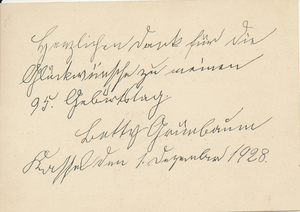 Herzlichen Dank für die
Glückwünsche zu meinen
95. Geburtstag.
Betty Grünbaum
Kassel den 1. Dezember 1928.